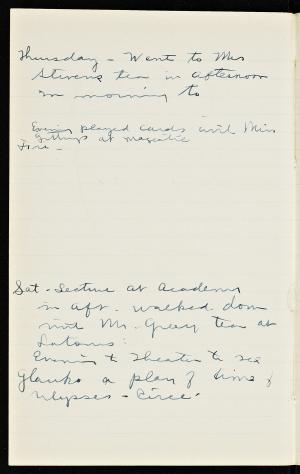 Thursday - Went to Mrs
Stevens tea in afternoon
in morning to
Evening played cards with Miss
Gittings at Majestic
Fri -
Sat - Lecture at Academy
in aft. walked down
with Mr. Grey tea at
Evening to theater to see
Glauko a play of time of
Ulysses - Circe.